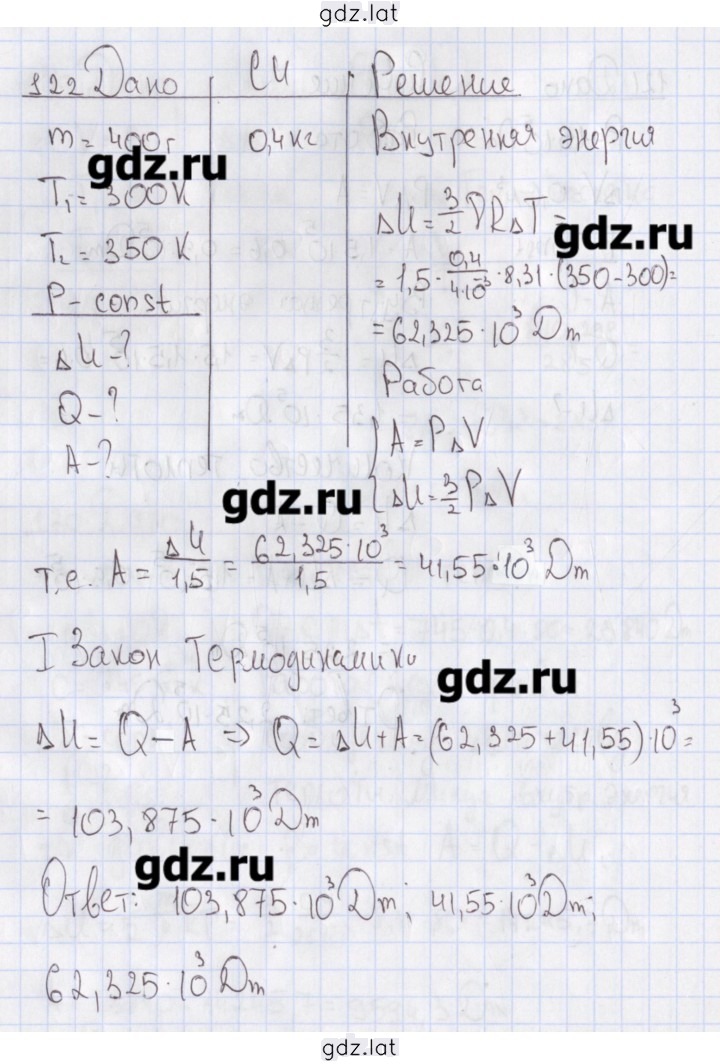 gdz.lat
122 Дано СИ Решение
m = 400г 0,4кг Внутренняя энергия
gdz.ru
T₁ = 300 K
ΔU = 3/2 νRΔT =
gdz.ru
T₂ = 350 K
= 1,5 · 0,4/4·10⁻³ · 8,31 · (350-300) =
P - const
= 62,325 · 10³ Дж
ΔU - ?
Работа
Q - ?
A = PΔV
A - ?
ΔU = 3/2 PΔV
gdz.ru
т.е. A = ΔU/1,5 = 62,325·10³/1,5 = 41,55·10³ Дж
I Закон Термодинамики
gdz.ru
ΔU = Q - A ⇒ Q = ΔU + A = (62,325 + 41,55)·10³ =
= 103,875 · 10³ Дж
gdz.ru
Ответ: 103,875·10³ Дж; 41,55·10³ Дж;
62,325 · 10³ Дж
gdz.lat